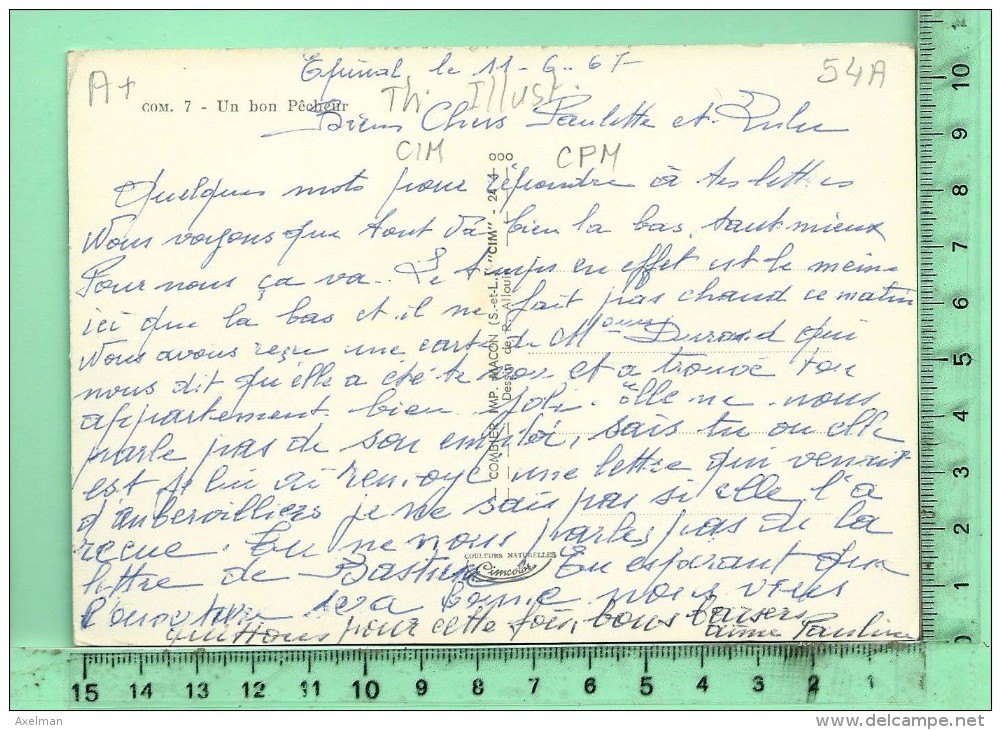 Epinal, le 11-6-67
54A
A+
COM. 7 - Un bon Pêcheur
Th. Illust.
Biens Chers Paulette et Lulu
CIM
CPM
Quelques mots pour répondre à tes lettres
Nous voyons que tout va bien la bas, tant mieux
Pour nous ça va. Le temps en effet est le meme
ici que la bas et il ne fait pas chaud ce matin
Nous avons reçu une carte de M Durand qui
nous dit qu'elle a été te voir et a trouvé ton
appartement bien joli. Elle ne nous
parle pas de son emploi, sais tu ou elle
est je lui ai renvoyé une lettre qui venait
d'aubervilliers je ne sais pas si elle l'a
recue. Tu ne nous parles pas de la
lettre de Bastien En esperant que
l'ouverture sera bonne nous vous
quittons pour cette fois, bons baisers
aime Pauline
COMBIER IMP. MACON (S.-et-L.) "CIM" - 24
Dessin de R. Allouin
COULEURS NATURELLES
Cimcolor
10
9
8
7
6
5
4
3
2
1
0
15 14 13 12 11 10 9 8 7 6 5 4 3 2 1
Axelman
www.delcampe.net